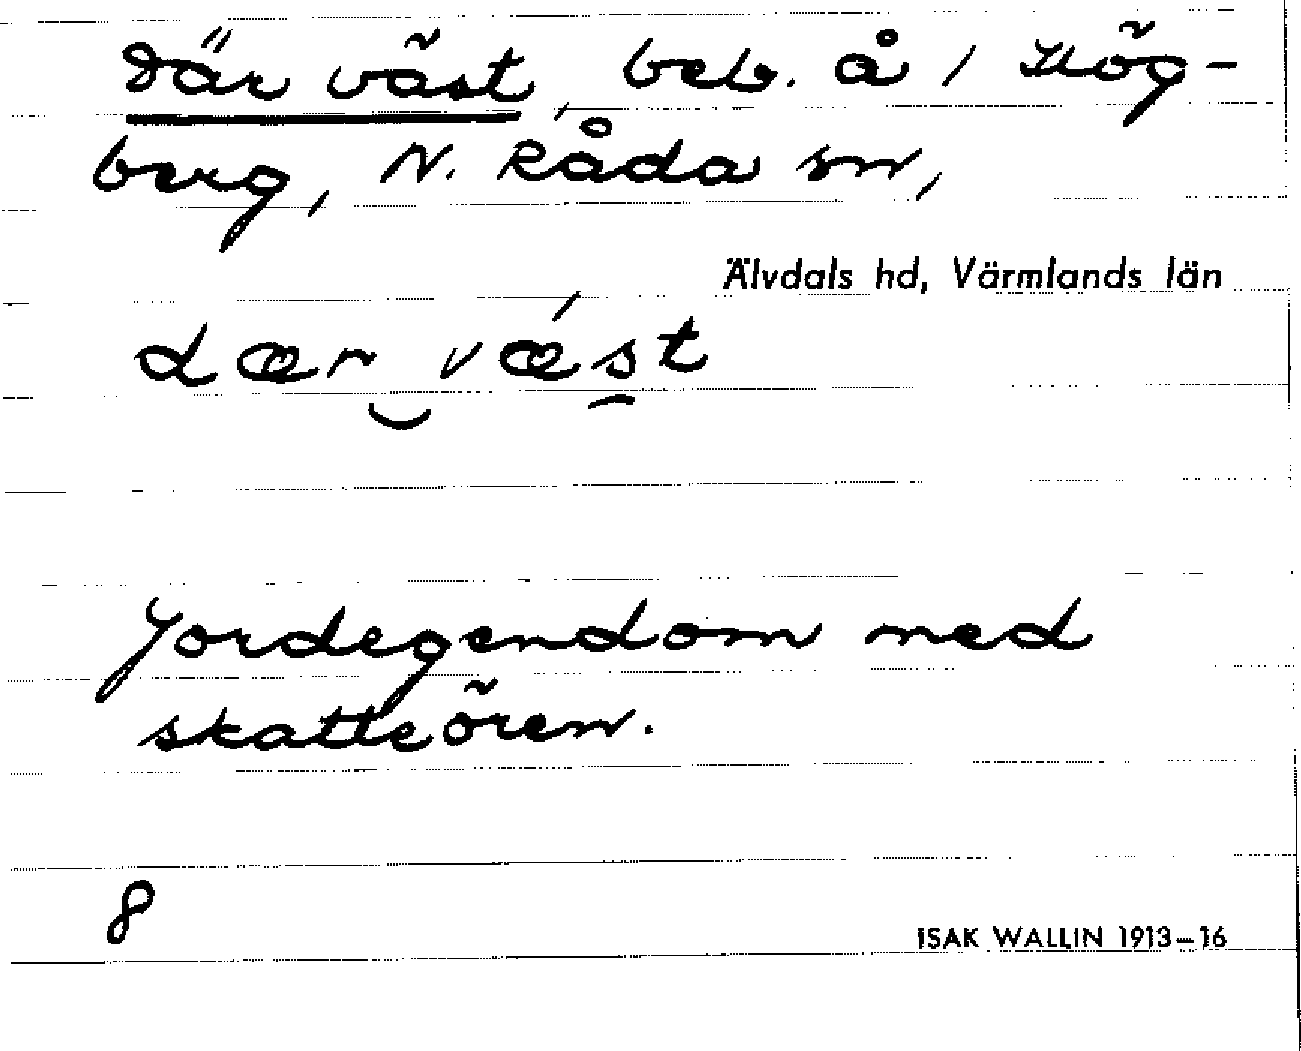 Där väst, beb. å / Hög-
berg, N. Råda sn,
Älvdals hd, Värmlands län
dær vǽst
Jordegendom med
skatteören.
8
ISAK WALLIN 1913–16